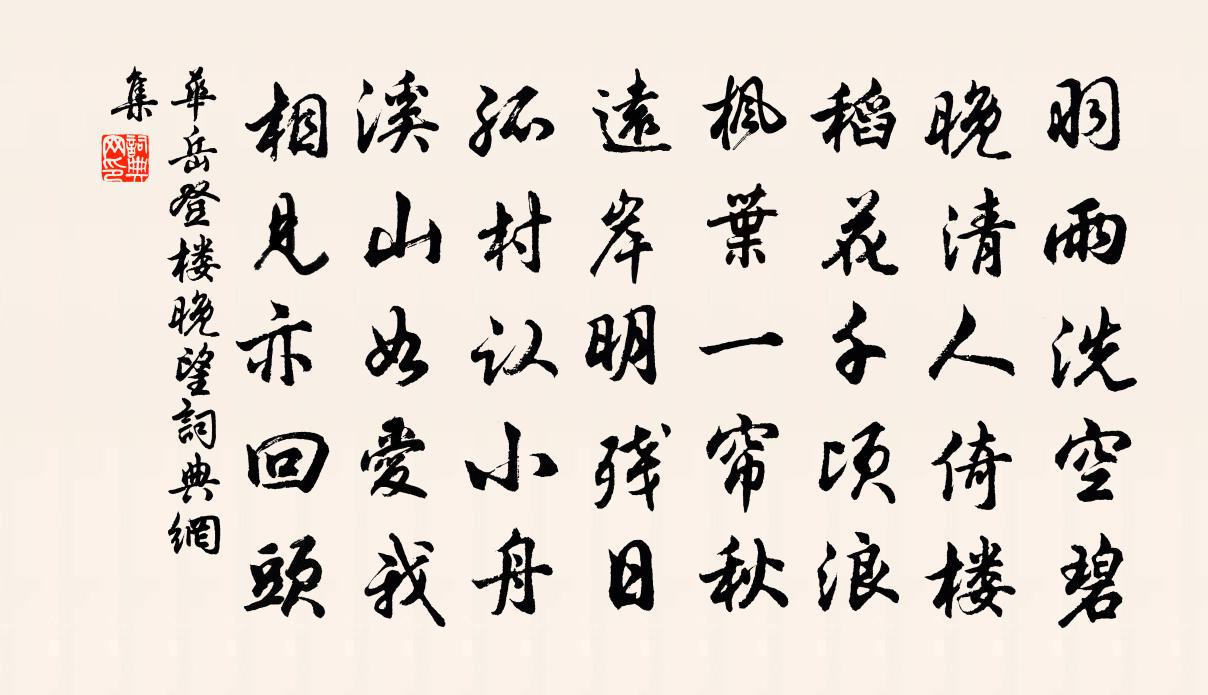 羽雨洗空碧
晚清人倚楼
稻花千顷浪
枫葉一帘秋
遠岸明残日
孤村认小舟
溪山如愛我
相見亦回頭
華岳登楼晚望詞典網
集
詞典
网印